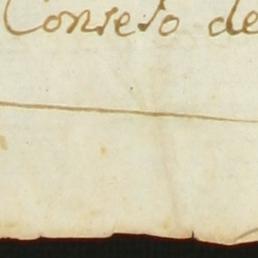 Consejo de